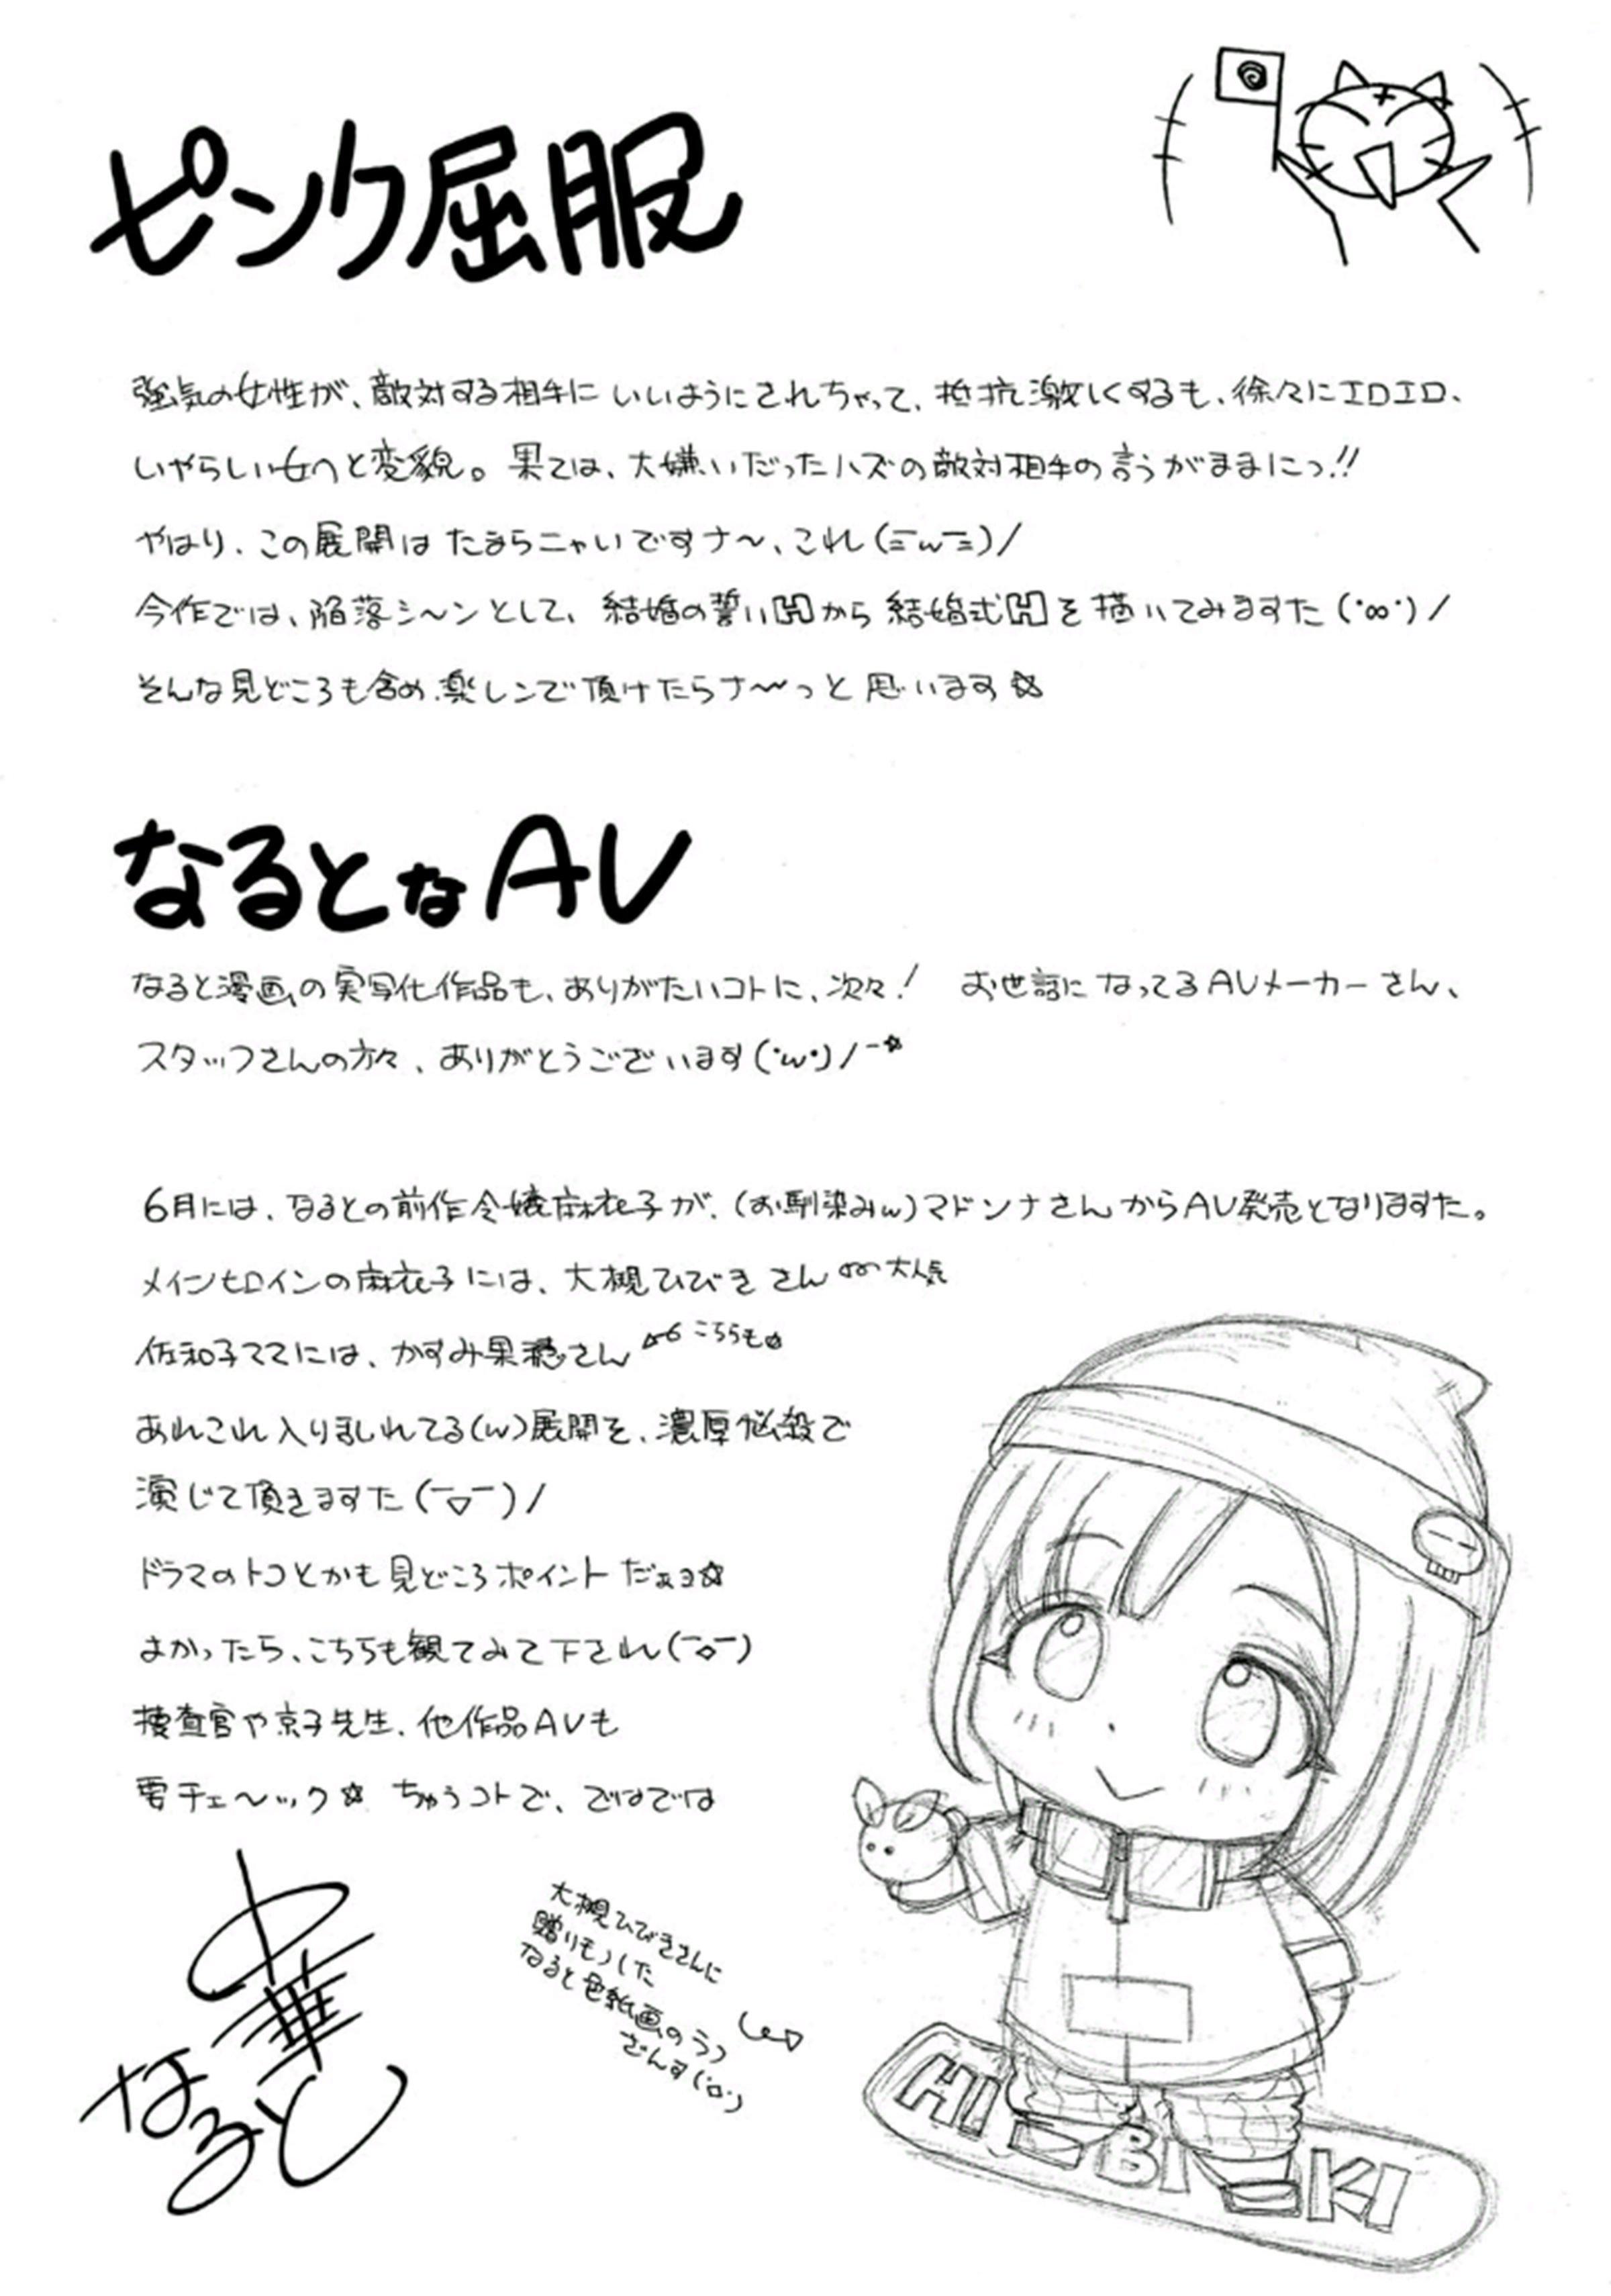 ピンク屈服
強気の女性が、敵対する相手にいいようにされちゃって、抵抗激しくするも、徐々にエロエロ、
いやらしい女へと変貌。果ては、大嫌いだったハズの敵対相手の言うがままにっ!!
やはり、この展開はたまらニャいですナ〜、これ(ミ￣ω￣ミ)/
今作では、陥落シ〜ンとして、結婚の誓いHから結婚式Hを描いてみますた(・∞・)/
そんな見どころも含め、楽しンで頂けたらナ〜〜っと思います☆
なるとなAV
なると漫画の実写化作品も、ありがたいコトに、次々! お世話になってるAVメーカーさん、
スタッフさんの方々、ありがとうございます(・ω・)/ー☆
6月には、なるとの前作令嬢麻衣子が、(お馴染みw)マドンナさんからAV発売となりますた。
メインヒロインの麻衣子には、大槻ひびきさん 大人気
佐和子ママには、かすみ果穂さん こちらも
あれこれ入りまじれてる(w)展開を、濃厚悩殺で
演じて頂きますた(￣▽￣)/
ドラマのトコとかも見どころポイントだぁョ☆
よかったら、こちらも観てみて下され(￣◇￣)
捜査官や京子先生、他作品AVも
要チェ〜ック☆ ちゅうコトで、ではでは
中華
なると
大槻ひびきさんに
贈りモノした
なると色紙画のラフ
ざんす(・ロ・)
HIBIKI